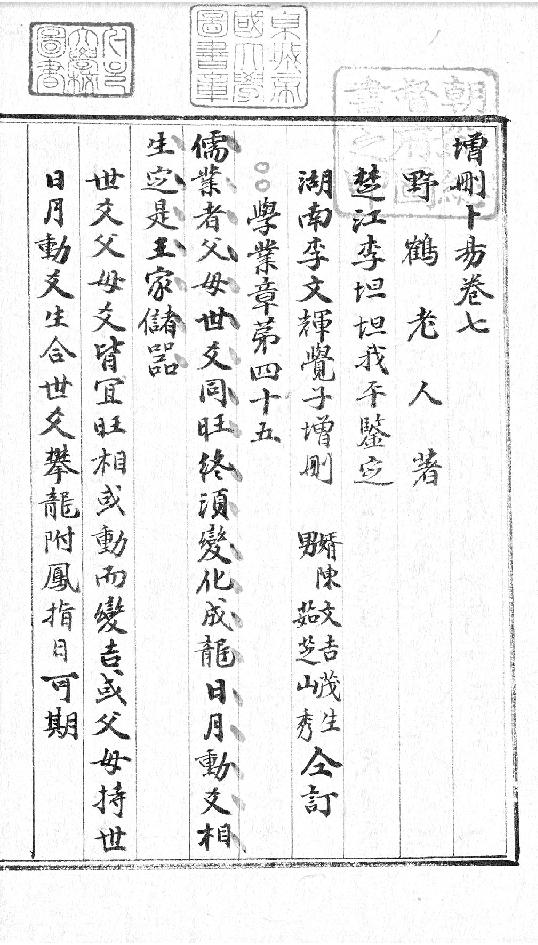 增刪卜易卷七
野鶴老人著
楚江李坦坦我平鑒定
湖南李文輝覺子增刪 婿陳文吉茂生 男茹芝山秀 仝訂
○○學業章第四十五
儒業者父母世爻同旺終須變化成龍日月動爻相
生定是王家儲器
世爻父母爻皆宜旺相或動而變吉或父母持世
日月動爻生合世爻攀龍附鳳指日可期
東洋帝國大學圖書章